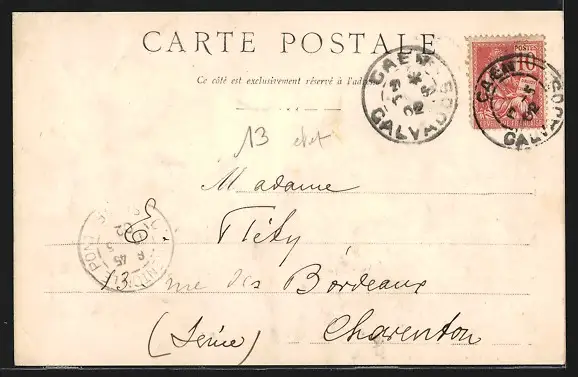 CARTE POSTALE
Ce côté est exclusivement réservé à l'adresse
CAEN
CALVADOS
02
POSTES
10
CAEN
CALVADOS
02
13 etat
Madame
Fléty
13 rue des Bordeaux
(Seine) Charenton
02
45